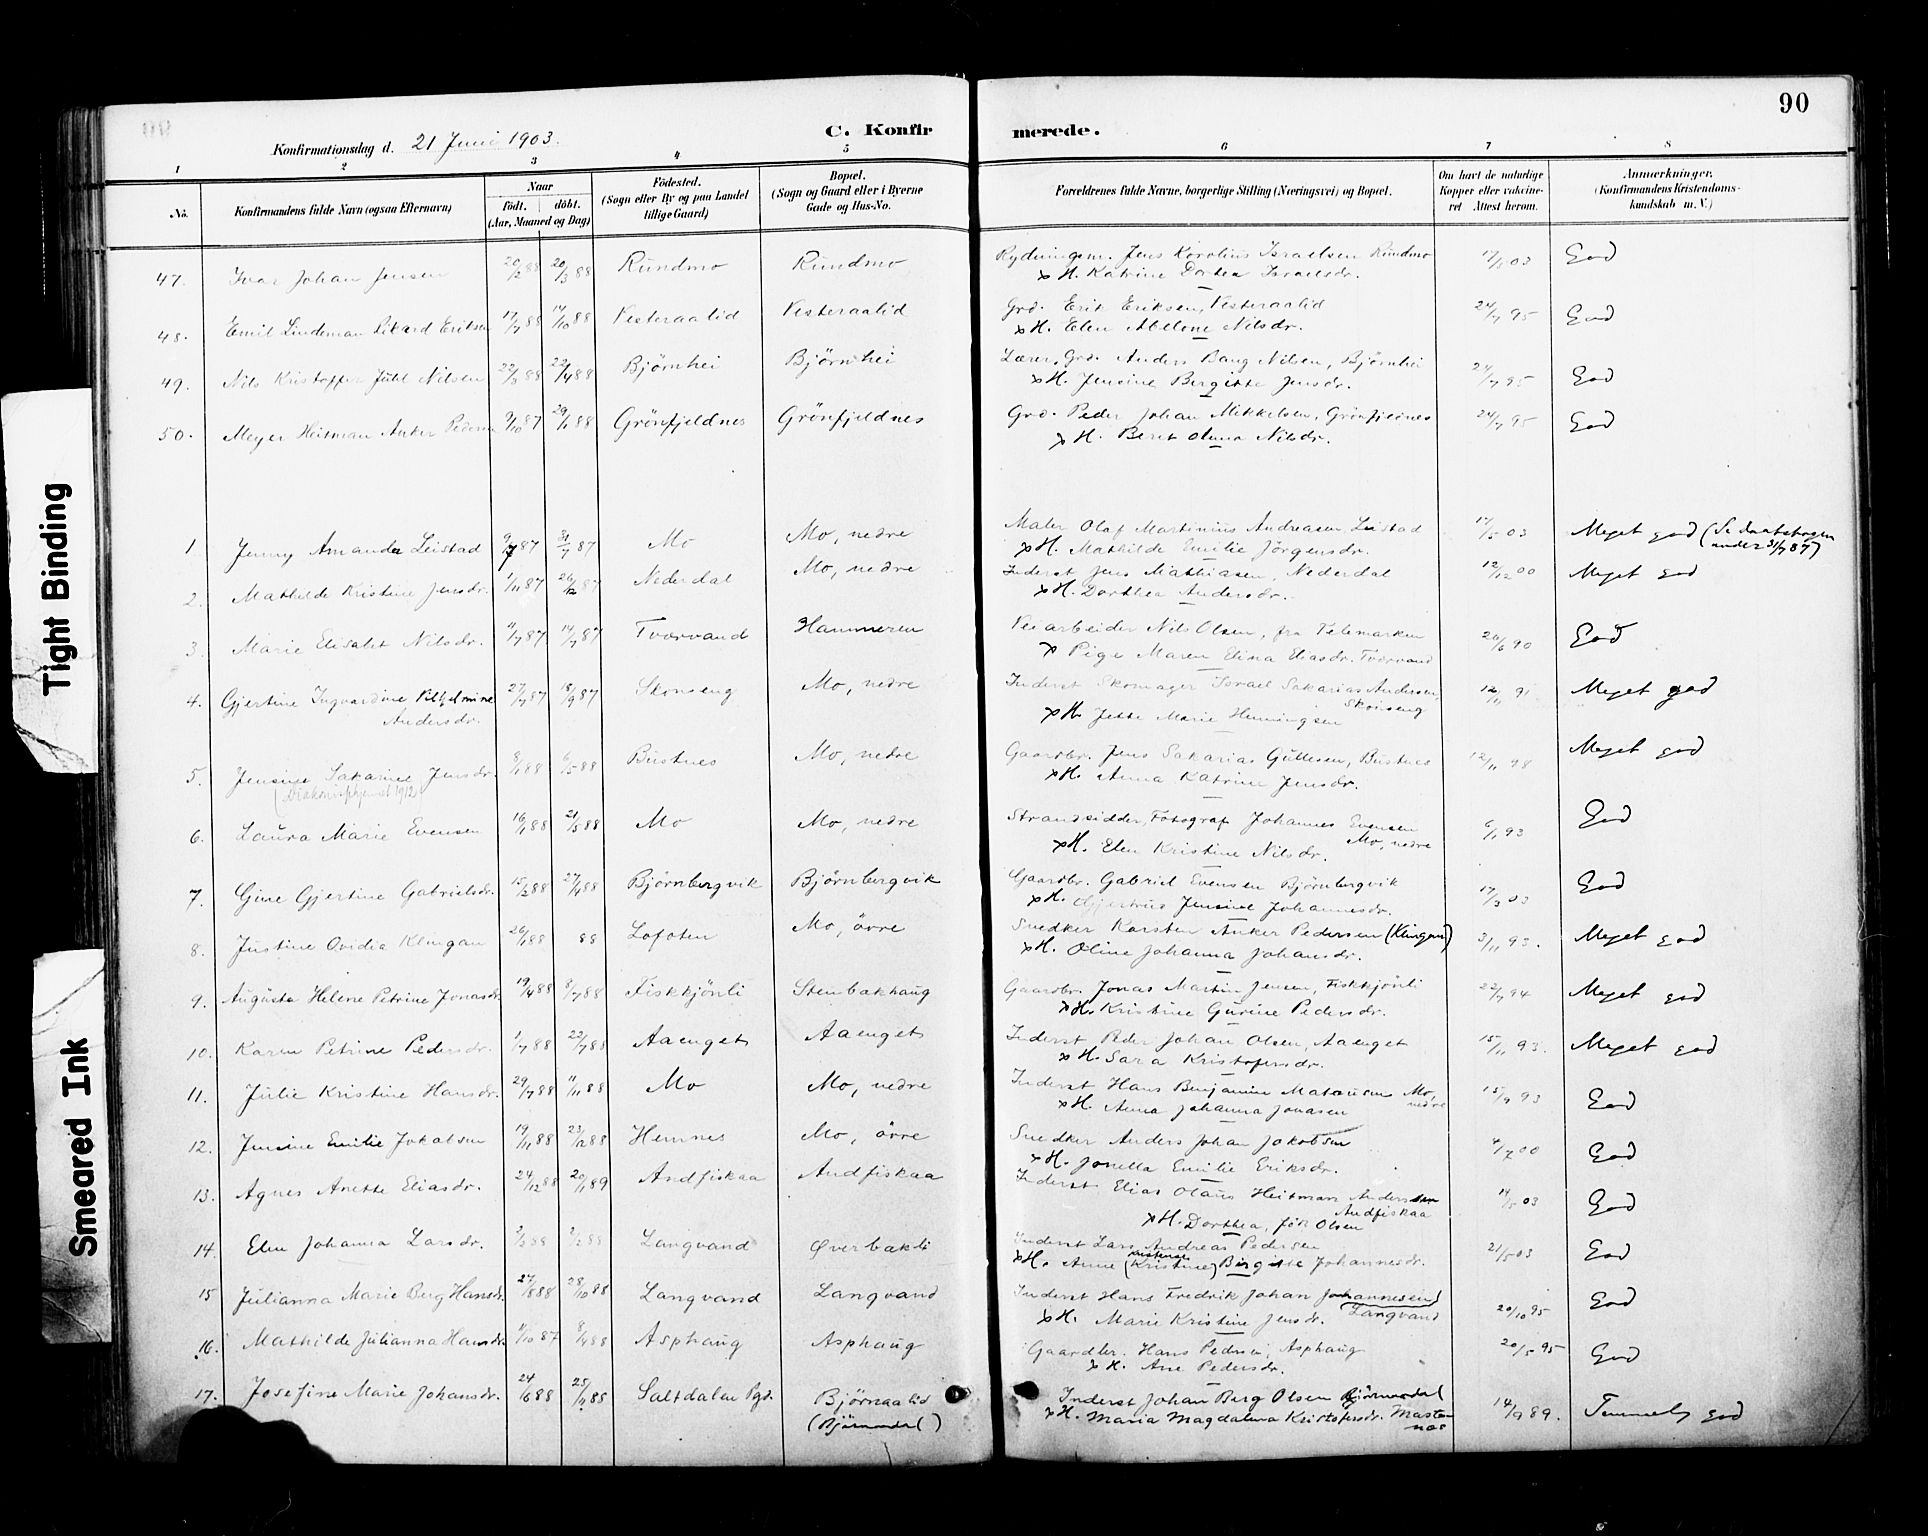 90
C. Konfirmerede.
Konfirmationsdag d. 21 Juni 1903.
1 2 3 4 5 6 7 8
No. Konfirmandens fulde Navn (ogsaa Efternavn) Naar Födt. döbt. (Aar, Maaned og Dag) Födested. (Sogn eller By og paa Landet tillige Gaard) Bopæl. (Sogn og Gaard eller i Byerne Gade og Hus-No. Forældrenes fulde Navne, borgerlige Stilling (Næringsvei) og Bopæl. Om havt de naturlige Kopper eller vaccineret Attest herom. Anmærkninger. (Konfirmandens Kristendomskundskab m. V.)
47. Ivar Johan Jensen 20/2 88 20/3 88 Rundmo Rundmo Rydningsm. Jens Karolius Israelsen Rundmo 17/5 03 God
x H. Katrine Dortea Israelsdr.
48. Emil Lindeman Rikard Eriksen 17/7 88 14/10 88 Vesteraalid Vesteraalid Grd. Erik Eriksen, Vesteraalid 24/7 95 God
x H. Elen Abelone Nilsdr.
49. Nils Kristoffer Juhl Nilsen 22/3 88 22/4 88 Björnhei Björnhei Lærer, Grd. Anders Bang Nilsen, Björnhei 24/7 95 God
x H. Jensine Bergitte Jensdr.
50. Meyer Heitman Anker Pedersen 9/10 87 29/1 88 Grönfjeldnes Grönfjeldnes Grd. Peder Johan Mikkelsen, Grönfjeldnes 24/7 95 God
x H. Beret Olina Nilsdr.
1 Jenny Amanda Leistad 9/7 87 31/7 87 Mo Mo, nedre Maler Olaf Martinius Andreasen Leistad 17/5 03 Meget god (Se daabsbogen under 31/7 87)
x H. Mathilde Emilie Jörgensdr.
2. Mathilde Kristine Jensdr. 1/11 87 26/12 87 Nederdal Mo, nedre Inderst Jens Mathiasen, Nederdal 12/12 00 Meget god
x H. Dorthea Andersdr.
3. Marie Elisabet Nilsdr. 4/7 87 14/7 87 Tværvand Hammeren Veiarbeider Nils Olsen, fra Telemarken 26/6 90 God
x Pige Maren Elina Eliasdr. Tværvand
4. Gjertine Ingvardine Vilhelmine Andersdr. 27/7 87 18/9 87 Skonseng Mo, nedre Inderst Skomager Israel Sakarias Andersen, Skonseng 12/11 91 Meget god
x H. Jette Marie Henningsen
5. Jensine Sakarine Jensdr. 8/1 88 6/5 88 Bustnes Mo, nedre Gaardbr. Jens Sakarias Gullesen, Bustnes 12/11 98 Meget god
x H. Anna Katrine Jensdr.
6. Laura Marie Evensen 16/1 88 21/5 88 Mo Mo, nedre Strandsidder, Fotograf Johannes Evensen Mo, nedre 6/1 93 God
x H. Elen Kristine Nilsdr.
7. Gine Gjertine Gabrielsdr. 15/2 88 27/4 88 Björnbergvik Björnbergvik Gaardbr. Gabriel Evensen Björnbergvik 17/3 03 God
x H. Gjertrud Jensine Johannesdr.
8. Justine Ovidia Klingan 26/1 88 88 Lofoten Mo, övre Snedker Karsten Anker Pedersen (Klingan) 3/11 93. Meget god
x H. Oline Johanna Johansdr.
9. Augusta Helene Petrine Jonasdr. 19/4 88 8/7 88 Fiskkjönli Stenbakhaug Gaardbr. Jonas Martin Jensen, Fiskkjönli 22/7 94 Meget god
x H. Kristine Gurine Pedersdr.
10. Karen Petrine Pedersdr. 1/7 88 22/7 88 Aaenget Aaenget Inderst Peder Johan Olsen, Aaenget 15/11 93. Meget god
x H. Sara Kristofersdr.
11. Julie Kristine Hansdr. 29/7 88 11/11 88 Mo Mo, nedre Inderst Hans Benjamin Mataeusen Mo, nedre 15/7 93 God
x H. Anna Johanna Jonasen
12. Jensine Emilie Jakobsen 19/11 88 23/12 88 Hemnes Mo, övre Snedker Anders Johan Jakobsen 4/7 00 God
x H. Jonella Emilie Eriksdr.
13. Agnes Anette Eliasdr. 24/12 88 20/1 89 Andfiskaa Andfiskaa Inderst Elias Olaus Heitman Andersen Andfiskaa 14/5 03 God
x H. Dorthea, föd Olsen
14. Elen Johanna Larsdr. 2/3 88 88 Langvand Øverbakli Inderst Lars Andreas Pedersen 21/5 03 God
x H. Anne (Kristine) Birgitte Johannesdr.
15 Julianna Marie Berg Hansdr. 27/8 88 28/10 88 Langvand Langvand Inderst Hans Fredrik Johan Johannessen Langvand 20/10 95 God
x H. Marie Kristine Jensdr.
16. Mathilde Julianna Hansdr. 1/10 87 8/4 88 Asphaug Asphaug Gaardbr. Hans Pedersen, Asphaug 20/5 95 God
x H. Ane Pedersdr.
17. Josefine Marie Johansdr. 24/6 88 25/ 88 Saltdalen Pgd. Björnaalid (Björnardal) Inderst Johan Berg Olsen Björnardal 14/9 89. Temmelig god
x H. Maria Magdalena Kristofersdr. Masternes
Tight Binding
Smeared Ink